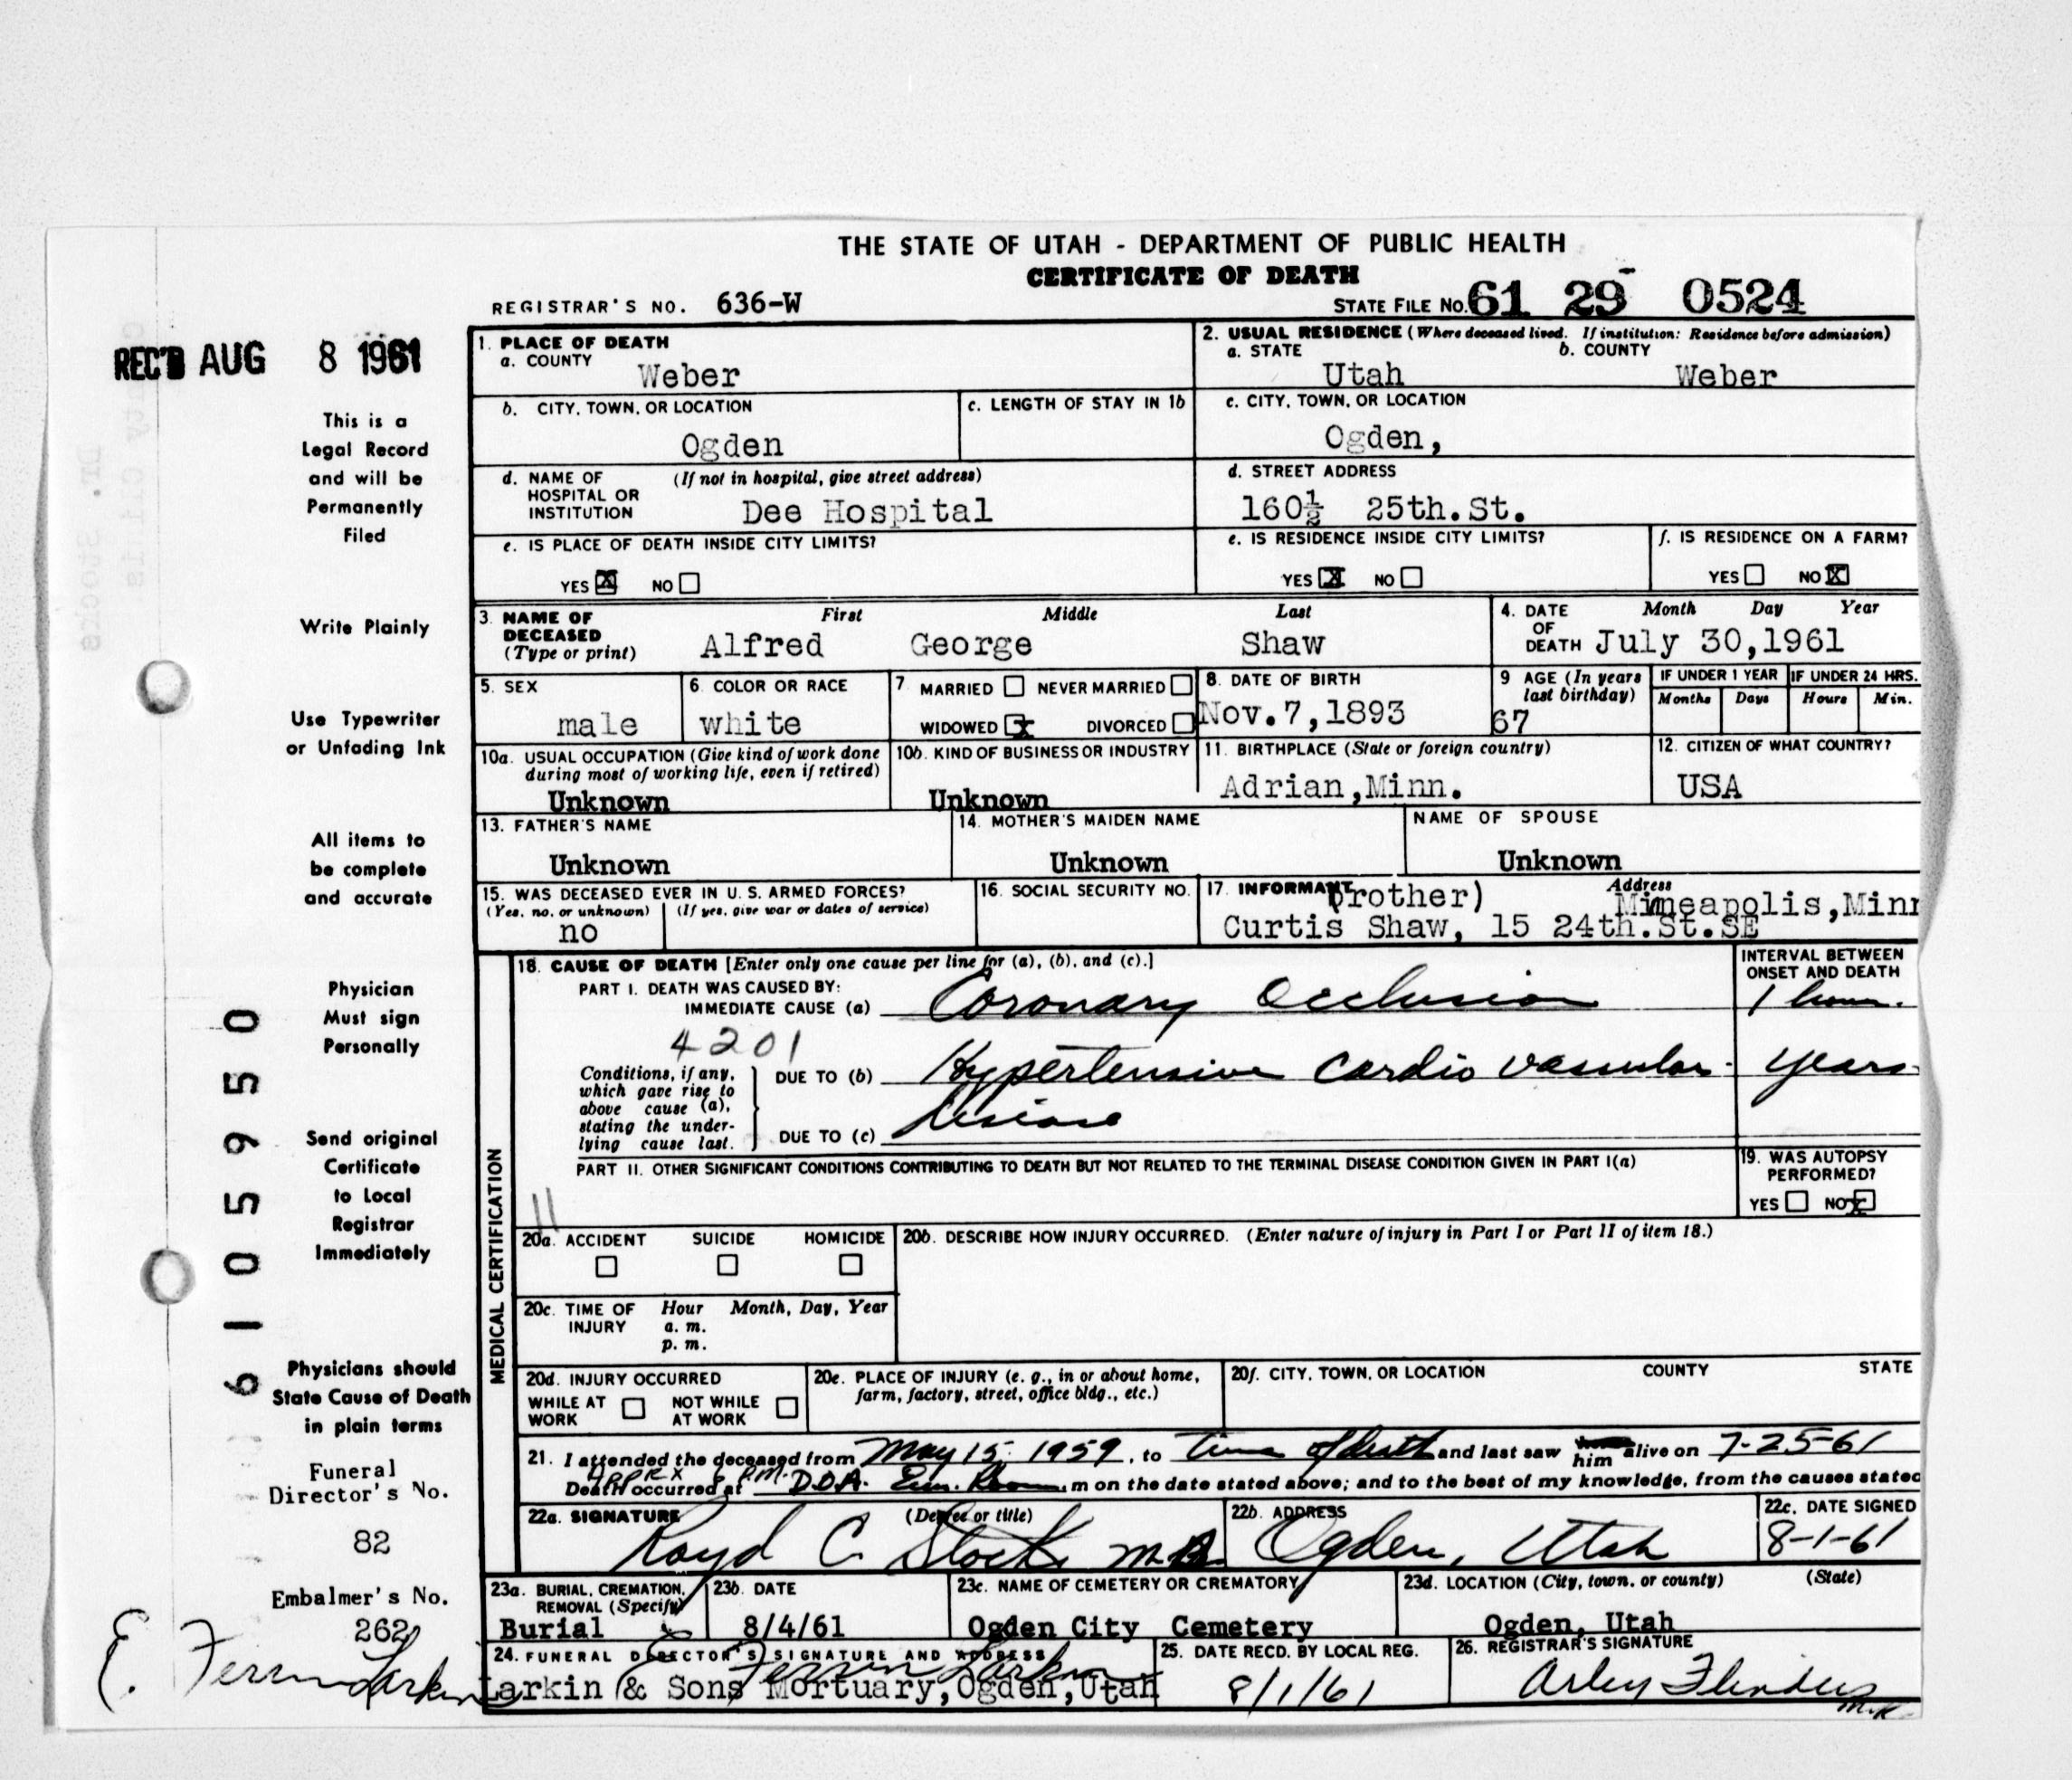 THE STATE OF UTAH - DEPARTMENT OF PUBLIC HEALTH
CERTIFICATE OF DEATH
REGISTRAR'S NO. 636-W
STATE FILE NO. 61 29 0524
REC'D AUG 8 1961
This is a
Legal Record
and will be
Permanently
Filed
Write Plainly
Use Typewriter
or Unfading Ink
All items to
be complete
and accurate
Physician
Must sign
Personally
Send original
Certificate
to Local
Registrar
Immediately
Physicians should
State Cause of Death
in plain terms
Funeral
Director's No.
82
Embalmer's No.
262
E. Ferrin Larkin
6105950
1. PLACE OF DEATH
a. COUNTY
Weber
2. USUAL RESIDENCE (Where deceased lived. If institution: Residence before admission)
a. STATE b. COUNTY
Utah Weber
b. CITY, TOWN, OR LOCATION
Ogden
c. LENGTH OF STAY IN 1b
c. CITY, TOWN, OR LOCATION
Ogden,
d. NAME OF (If not in hospital, give street address)
HOSPITAL OR
INSTITUTION Dee Hospital
d. STREET ADDRESS
160½ 25th.St.
e. IS PLACE OF DEATH INSIDE CITY LIMITS?
YES X NO
e. IS RESIDENCE INSIDE CITY LIMITS?
YES X NO
f. IS RESIDENCE ON A FARM?
YES NO X
3. NAME OF First Middle Last
DECEASED
(Type or print) Alfred George Shaw
4. DATE Month Day Year
OF
DEATH July 30,1961
5. SEX
male
6. COLOR OR RACE
white
7 MARRIED NEVER MARRIED
WIDOWED X DIVORCED
8. DATE OF BIRTH
Nov.7,1893
9 AGE (In years
last birthday)
67
IF UNDER 1 YEAR
Months Days
IF UNDER 24 HRS.
Hours Min.
10a. USUAL OCCUPATION (Give kind of work done
during most of working life, even if retired)
Unknown
10b. KIND OF BUSINESS OR INDUSTRY
Unknown
11. BIRTHPLACE (State or foreign country)
Adrian,Minn.
12. CITIZEN OF WHAT COUNTRY?
USA
13. FATHER'S NAME
Unknown
14. MOTHER'S MAIDEN NAME
Unknown
NAME OF SPOUSE
Unknown
15. WAS DECEASED EVER IN U. S. ARMED FORCES?
(Yes, no, or unknown) (If yes, give war or dates of service)
no
16. SOCIAL SECURITY NO.
17. INFORMANT (brother) Address
Minneapolis,Minn
Curtis Shaw, 15 24th.St.SE
MEDICAL CERTIFICATION
18. CAUSE OF DEATH [Enter only one cause per line for (a), (b), and (c).]
PART I. DEATH WAS CAUSED BY:
IMMEDIATE CAUSE (a) Coronary Occlusion
INTERVAL BETWEEN
ONSET AND DEATH
1 hour.
4201
Conditions, if any,
which gave rise to
above cause (a),
stating the under-
lying cause last.
DUE TO (b) Hypertensive Cardio vascular years
disease
DUE TO (c)
PART II. OTHER SIGNIFICANT CONDITIONS CONTRIBUTING TO DEATH BUT NOT RELATED TO THE TERMINAL DISEASE CONDITION GIVEN IN PART I(a)
19. WAS AUTOPSY
PERFORMED?
YES NO X
11
20a. ACCIDENT SUICIDE HOMICIDE
20b. DESCRIBE HOW INJURY OCCURRED. (Enter nature of injury in Part I or Part II of item 18.)
20c. TIME OF Hour Month, Day, Year
INJURY a. m.
p. m.
20d. INJURY OCCURRED
WHILE AT WORK NOT WHILE AT WORK
20e. PLACE OF INJURY (e. g., in or about home,
farm, factory, street, office bldg., etc.)
20f. CITY, TOWN, OR LOCATION COUNTY STATE
21. I attended the deceased from May 15, 1959, to time of death and last saw him alive on 7-25-61
Death occurred at APPRX 8 P.M. D.O.A. Em. Room m on the date stated above; and to the best of my knowledge, from the causes stated
22a. SIGNATURE (Degree or title)
Loyd C. Stocks M.D.
22b. ADDRESS
Ogden, Utah
22c. DATE SIGNED
8-1-61
23a. BURIAL, CREMATION,
REMOVAL (Specify)
Burial
23b. DATE
8/4/61
23c. NAME OF CEMETERY OR CREMATORY
Ogden City Cemetery
23d. LOCATION (City, town, or county) (State)
Ogden, Utah
24. FUNERAL DIRECTOR'S SIGNATURE AND ADDRESS
E. Ferrin Larkin
Larkin & Sons Mortuary,Ogden,Utah
25. DATE RECD. BY LOCAL REG.
8/1/61
26. REGISTRAR'S SIGNATURE
Arley Flinders
m.k.